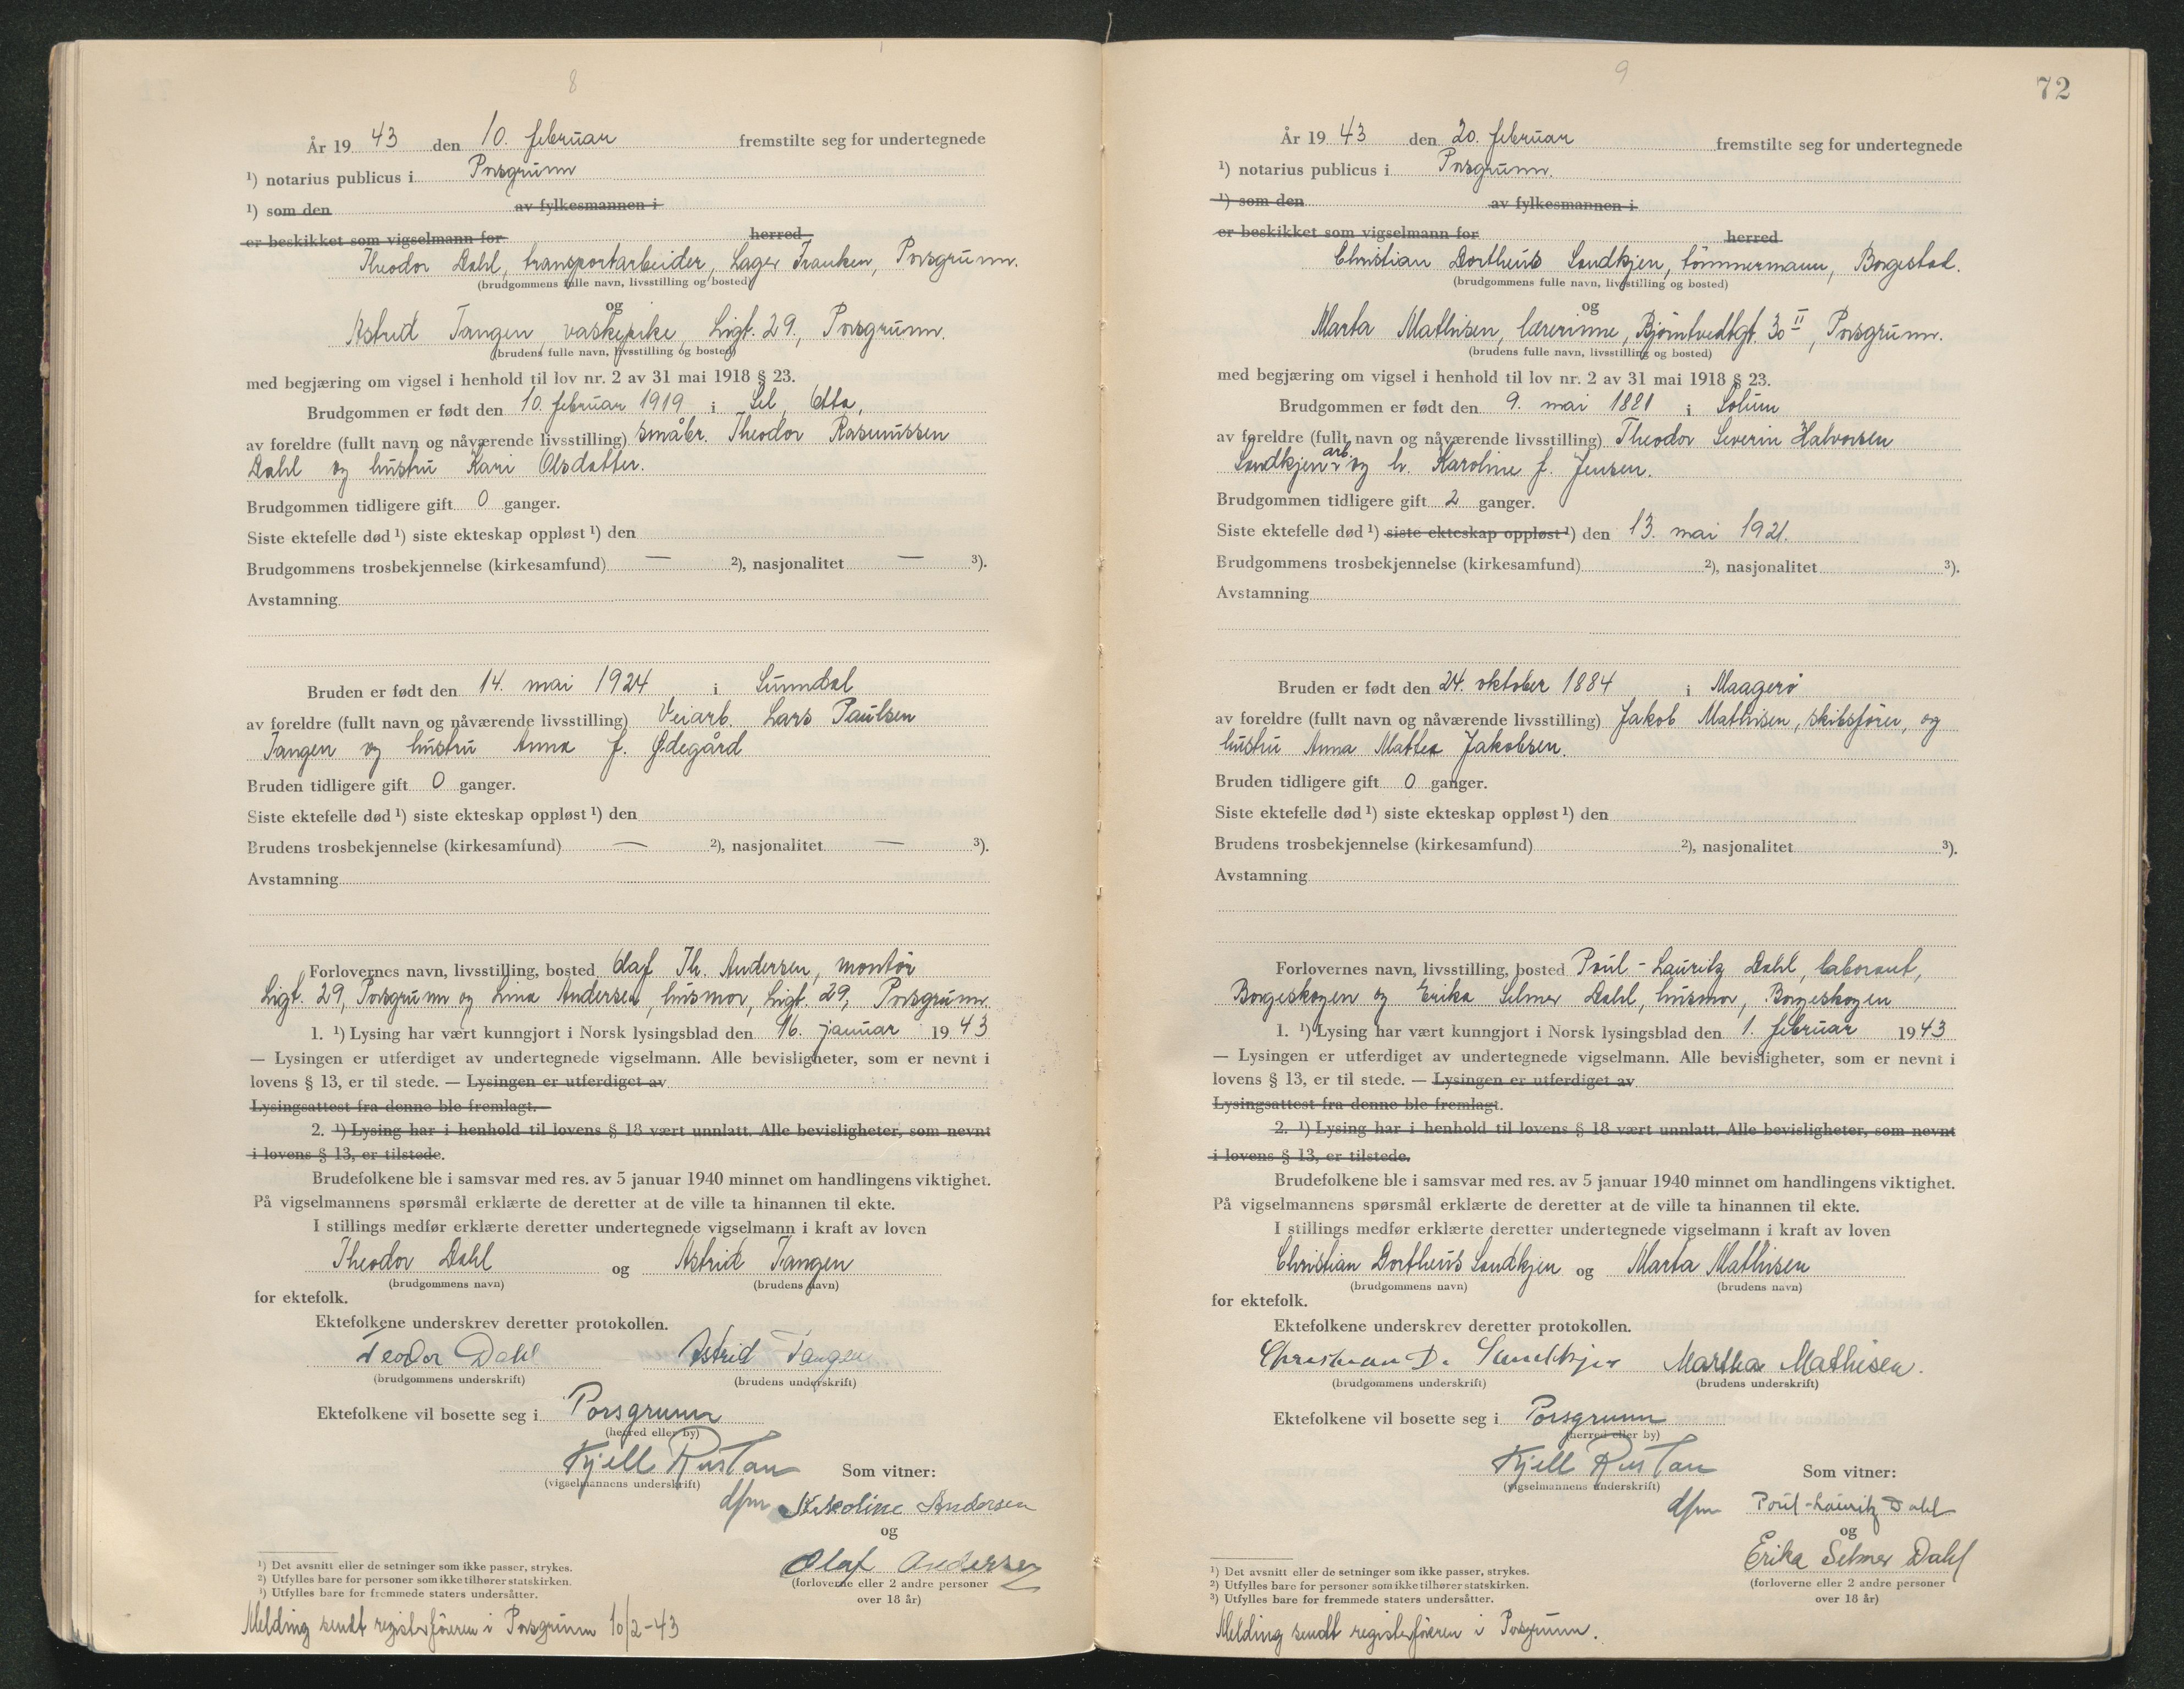 8
År 19 43 den 10. februar fremstilte seg for undertegnede
¹) notarius publicus i Porsgrunn
¹) som den av fylkesmannen i
er beskikket som vigselmann for herred
Theodor Dahl, transportarbeider, Lager Tranken, Porsgrunn.
(brudgommens fulle navn, livsstilling og bosted)
og
Astrid Tangen, vaskepike, Ligt. 29, Porsgrunn.
(brudens fulle navn, livsstilling og bosted)
med begjæring om vigsel i henhold til lov nr. 2 av 31 mai 1918 § 23.
Brudgommen er født den 10. februar 1919 i Sel, Otta,
av foreldre (fullt navn og nåværende livsstilling) småbr. Theodor Rasmussen
Dahl og hustru Kari Olsdatter.
Brudgommen tidligere gift 0 ganger.
Siste ektefelle død ¹) siste ekteskap oppløst ¹) den
Brudgommens trosbekjennelse (kirkesamfund) — ²), nasjonalitet — ³).
Avstamning
Bruden er født den 14. mai 1924 i Sunndal
av foreldre (fullt navn og nåværende livsstilling) Veiarb. Lars Paulsen
Tangen og hustru Anna f. Ødegård
Bruden tidligere gift 0 ganger.
Siste ektefelle død ¹) siste ekteskap oppløst ¹) den
Brudens trosbekjennelse (kirkesamfund) — ²), nasjonalitet — ³).
Avstamning
Forlovernes navn, livsstilling, bosted Olaf Th. Andersen, montör
Ligt. 29, Porsgrunn og Lina Andersen, husmor, Ligt. 29, Porsgrunn.
1. ¹) Lysing har vært kunngjort i Norsk lysingsblad den 16. januar 19 43
— Lysingen er utferdiget av undertegnede vigselmann. Alle bevisligheter, som er nevnt i
lovens § 13, er til stede. — Lysingen er utferdiget av
Lysingsattest fra denne ble fremlagt.
2. ¹) Lysing har i henhold til lovens § 18 vært unnlatt. Alle bevisligheter, som nevnt
i lovens § 13, er tilstede.
Brudefolkene ble i samsvar med res. av 5 januar 1940 minnet om handlingens viktighet.
På vigselmannens spørsmål erklærte de deretter at de ville ta hinannen til ekte.
I stillings medfør erklærte deretter undertegnede vigselmann i kraft av loven
Theodor Dahl og Astrid Tangen
(brudgommens navn) (brudens navn)
for ektefolk.
Ektefolkene underskrev deretter protokollen.
Teodor Dahl Astrid Tangen
(brudgommens underskrift) (brudens underskrift)
Ektefolkene vil bosette seg i Porsgrunn
(herred eller by)
Kjell Rustan Som vitner:
(vigselmannens underskrift)
dfm Andersen
og
Olaf Andersen
(forloverne eller 2 andre personer
over 18 år)
¹) Det avsnitt eller de setninger som ikke passer, strykes.
²) Utfylles bare for personer som ikke tilhører statskirken.
³) Utfylles bare for fremmede staters undersåtter.
Melding sendt registerföreren i Porsgrunn 10/2-43
9
72
År 19 43 den 20. februar fremstilte seg for undertegnede
¹) notarius publicus i Porsgrunn.
¹) som den av fylkesmannen i
er beskikket som vigselmann for herred
Christian Dortheus Sandkjen, tömmermann, Borgestad.
(brudgommens fulle navn, livsstilling og bosted)
og
Marta Mathisen, lærerinne, Bjørntvedtgt. 30 II, Porsgrunn.
(brudens fulle navn, livsstilling og bosted)
med begjæring om vigsel i henhold til lov nr. 2 av 31 mai 1918 § 23.
Brudgommen er født den 9. mai 1881 i Solum
av foreldre (fullt navn og nåværende livsstilling) Theodor Severin Halvorsen
Sandkjen arb. og h. Karoline f. Jensen.
Brudgommen tidligere gift 2 ganger.
Siste ektefelle død ¹) siste ekteskap oppløst ¹) den 13. mai 1921.
Brudgommens trosbekjennelse (kirkesamfund) ²), nasjonalitet ³).
Avstamning
Bruden er født den 24. oktober 1884 i Maagerö
av foreldre (fullt navn og nåværende livsstilling) Jakob Mathisen, skibsförer, og
hustru Anna Mathea Jakobsen.
Bruden tidligere gift 0 ganger.
Siste ektefelle død ¹) siste ekteskap oppløst ¹) den
Brudens trosbekjennelse (kirkesamfund) ²), nasjonalitet ³).
Avstamning
Forlovernes navn, livsstilling, bosted Poul-Lauritz Dahl, laborant,
Borgeskogen og Erika Selmer Dahl, husmor, Borgeskogen
1. ¹) Lysing har vært kunngjort i Norsk lysingsblad den 1. februar 19 43
— Lysingen er utferdiget av undertegnede vigselmann. Alle bevisligheter, som er nevnt i
lovens § 13, er til stede. — Lysingen er utferdiget av
Lysingsattest fra denne ble fremlagt.
2. ¹) Lysing har i henhold til lovens § 18 vært unnlatt. Alle bevisligheter, som nevnt
i lovens § 13, er tilstede.
Brudefolkene ble i samsvar med res. av 5 januar 1940 minnet om handlingens viktighet.
På vigselmannens spørsmål erklærte de deretter at de ville ta hinannen til ekte.
I stillings medfør erklærte deretter undertegnede vigselmann i kraft av loven
Christian Dortheus Sandkjen og Marta Mathisen
(brudgommens navn) (brudens navn)
for ektefolk.
Ektefolkene underskrev deretter protokollen.
Christian D. Sandkjen Martha Mathisen.
(brudgommens underskrift) (brudens underskrift)
Ektefolkene vil bosette seg i Porsgrunn
(herred eller by)
Kjell Rustan Som vitner:
(vigselmannens underskrift)
dfm Poul-Lauritz Dahl
og
Erika Selmer Dahl
(forloverne eller 2 andre personer
over 18 år)
¹) Det avsnitt eller de setninger som ikke passer, strykes.
²) Utfylles bare for personer som ikke tilhører statskirken.
³) Utfylles bare for fremmede staters undersåtter.
Melding sendt registerföreren i Porsgrunn.